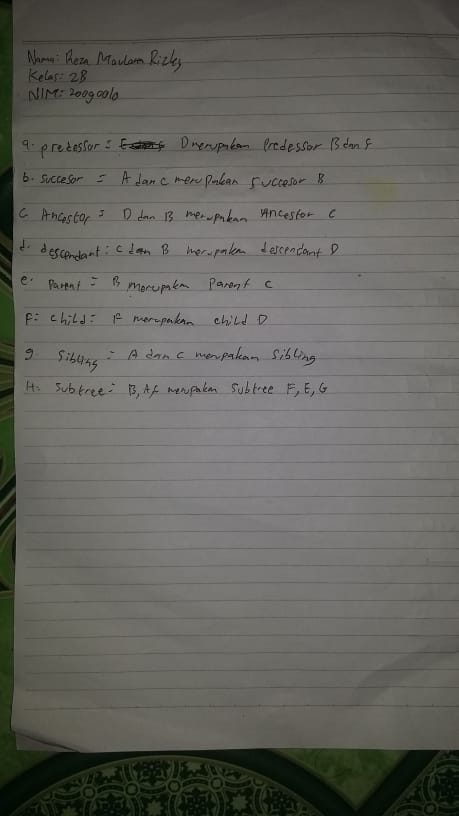 Nama: Reza Maulana Rizky
Kelas: 2B
NIM: 2009006
a. predessor = D merupakan Predessor B dan F
b. Succesor = A dan C merupakan Succesor B
C. Ancestor = D dan B merupakan Ancestor C
d. descendant: C dan B merupakan descendant D
e. Parent = B merupakan Parent C
F: child = F merupakan child D
g. Sibling = A dan C merupakan Sibling
H. Subtree = B, A, merupakan Subtree F, E, G